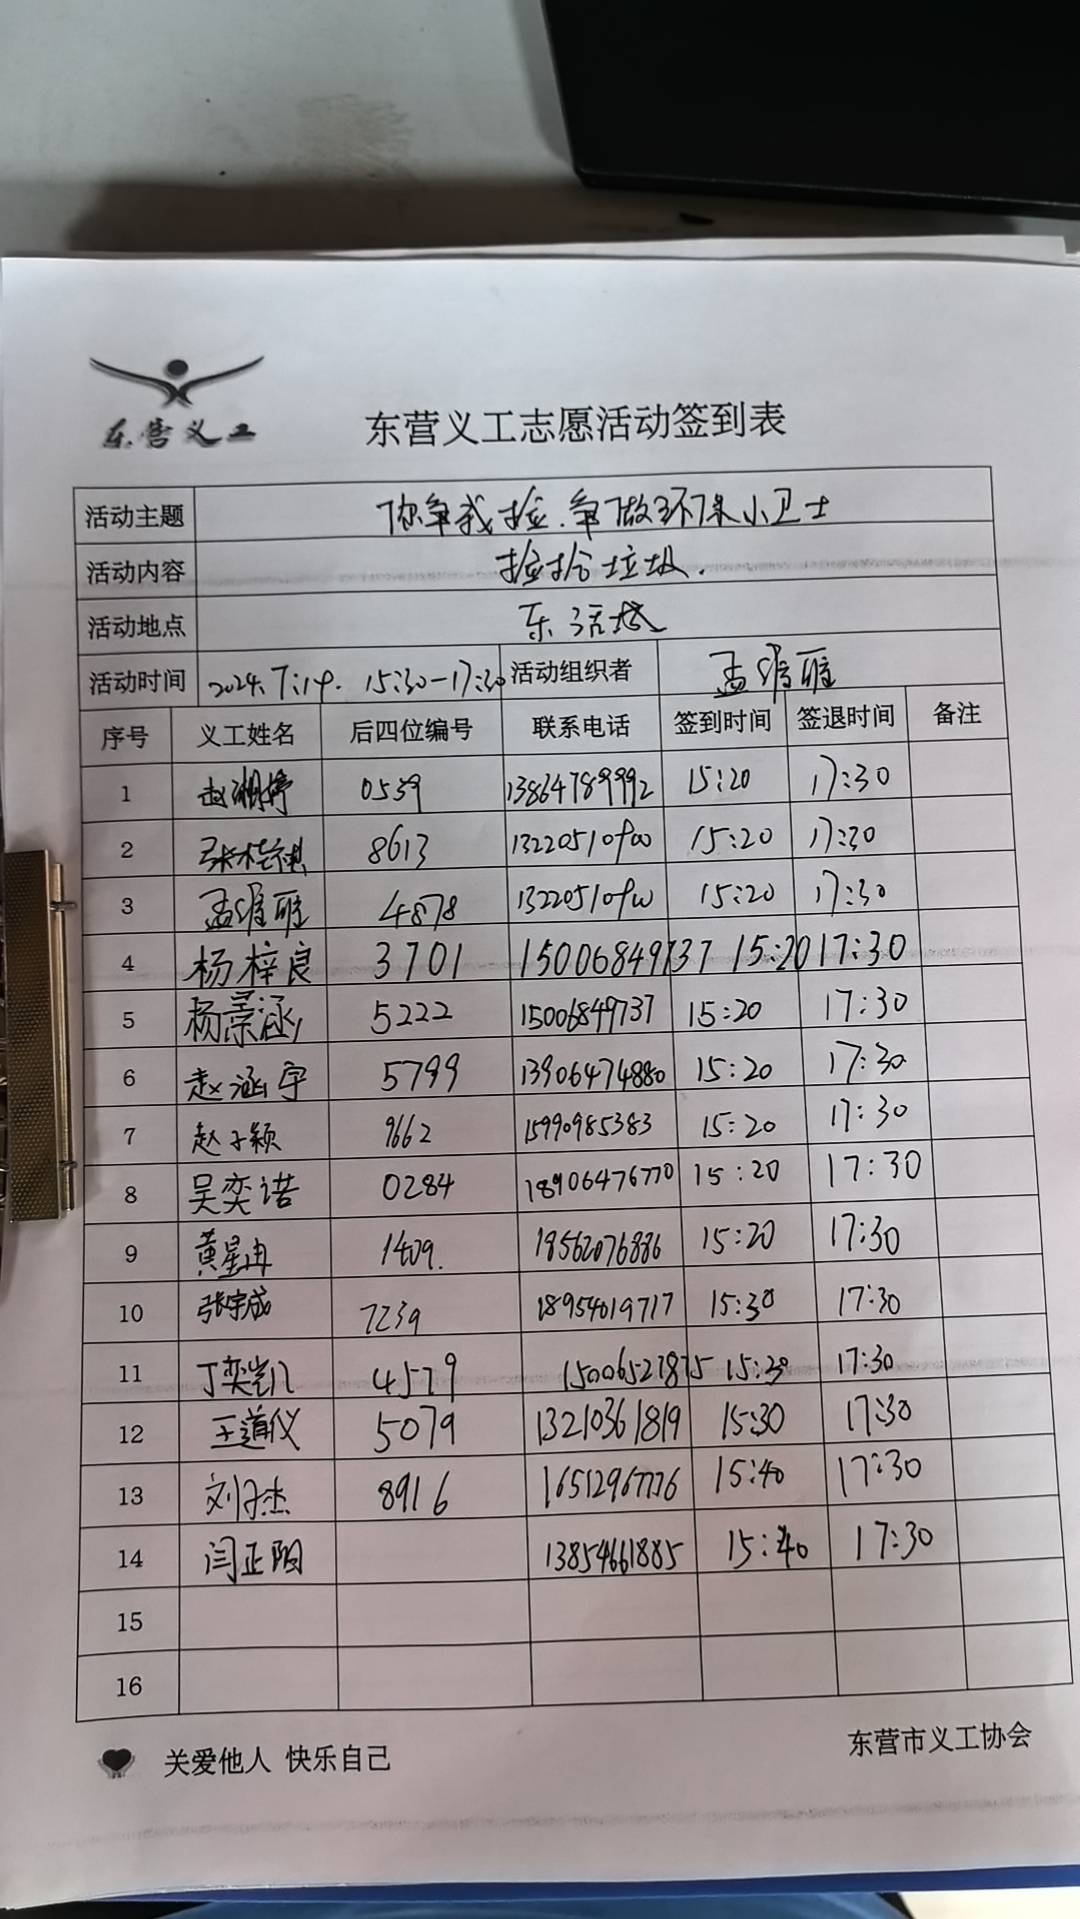 东营义工
东营义工志愿活动签到表
活动主题 你争我捡.争做环保小卫士
活动内容 捡拾垃圾.
活动地点 东活动
活动时间 2024.7.14. 15:30-17:30 活动组织者 孟维丽
序号 义工姓名 后四位编号 联系电话 签到时间 签退时间 备注
1 赵湘婷 0539 13864789992 15:20 17:30
2 张桂祺 8613 15:20 17:30
3 孟维丽 4878 15:20 17:30
4 杨梓良 3701 15006849737 15:20 17:30
5 杨景涵 5222 15006849737 15:20 17:30
6 赵涵宇 5799 13906474880 15:20 17:30
7 赵子颖 9662 15990985383 15:20 17:30
8 吴奕诺 0284 18906476770 15:20 17:30
9 黄星冉 1409. 18562076886 15:20 17:30
10 张宇成 7239 18954019717 15:30 17:30
11 丁奕凯 4579 15006527875 15:30 17:30
12 王道仪 5079 13210361819 15:30 17:30
13 刘子杰 8916 16512967776 15:40 17:30
14 闫正阳 13854661885 15:40 17:30
15
16
关爱他人 快乐自己
东营市义工协会